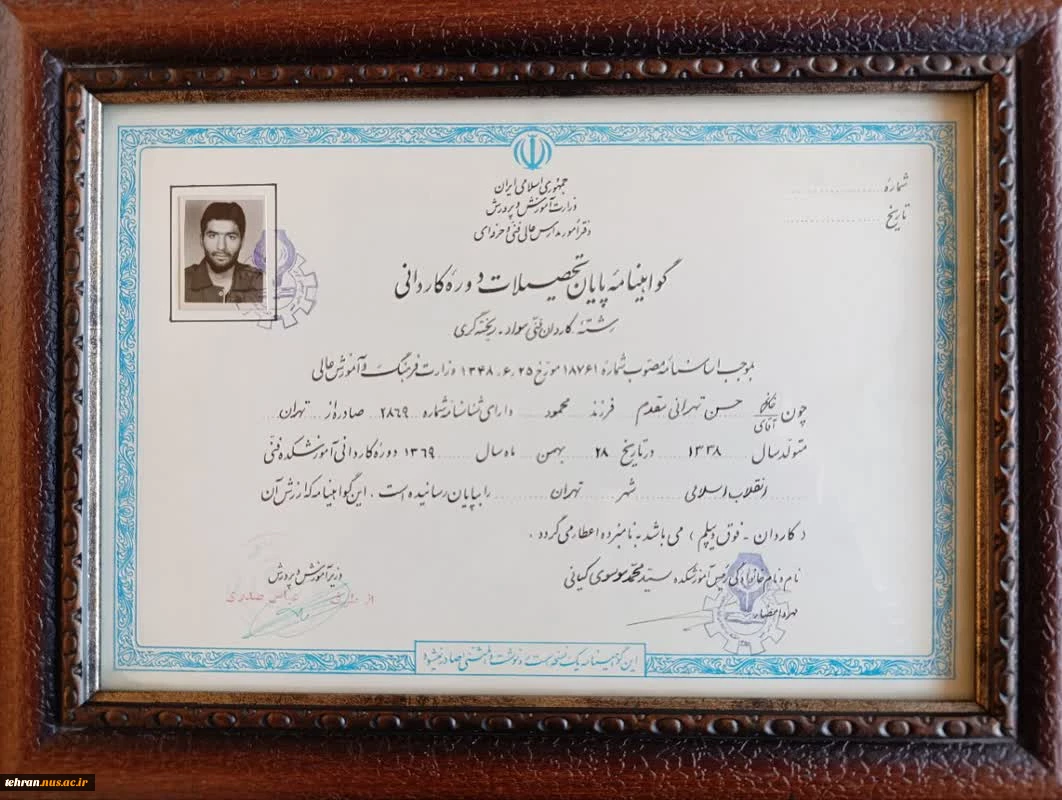 شماره
تاریخ
جمهوری اسلامی ایران
وزارت آموزش و پرورش
دفتر امور مدارس عالی فنی و حرفه‌ای
گواهینامه پایان تحصیلات دوره کاردانی
رشته کاردان فنی مواد - ریخته گری
بموجب اساسنامه مصوب شماره ۱۸۷۶۱ مورخ ۱۳۴۸.۶.۲۵ وزارت فرهنگ و آموزش عالی
چون خانم آقای حسن تهرانی مقدم فرزند محمود دارای شناسنامه شماره ۲۸۶۹ صادره از تهران
متولد سال ۱۳۳۸ در تاریخ ۲۸ بهمن ماه سال ۱۳۶۹ دوره کاردانی آموزشکده فنی
انقلاب اسلامی شهر تهران را بپایان رسانیده است . این گواهینامه که ارزش آن
( کاردان - فوق دیپلم ) می باشد به نامبرده اعطاء می گردد .
نام و نام خانوادگی رئیس آموزشکده سید محمد موسوی کیانی
مهر و امضاء
وزیر آموزش و پرورش
از طرف عباس صدری
این گواهینامه یک نسخه است و رونوشت یا المثنی صادر نمیشود
tehran.nus.ac.ir